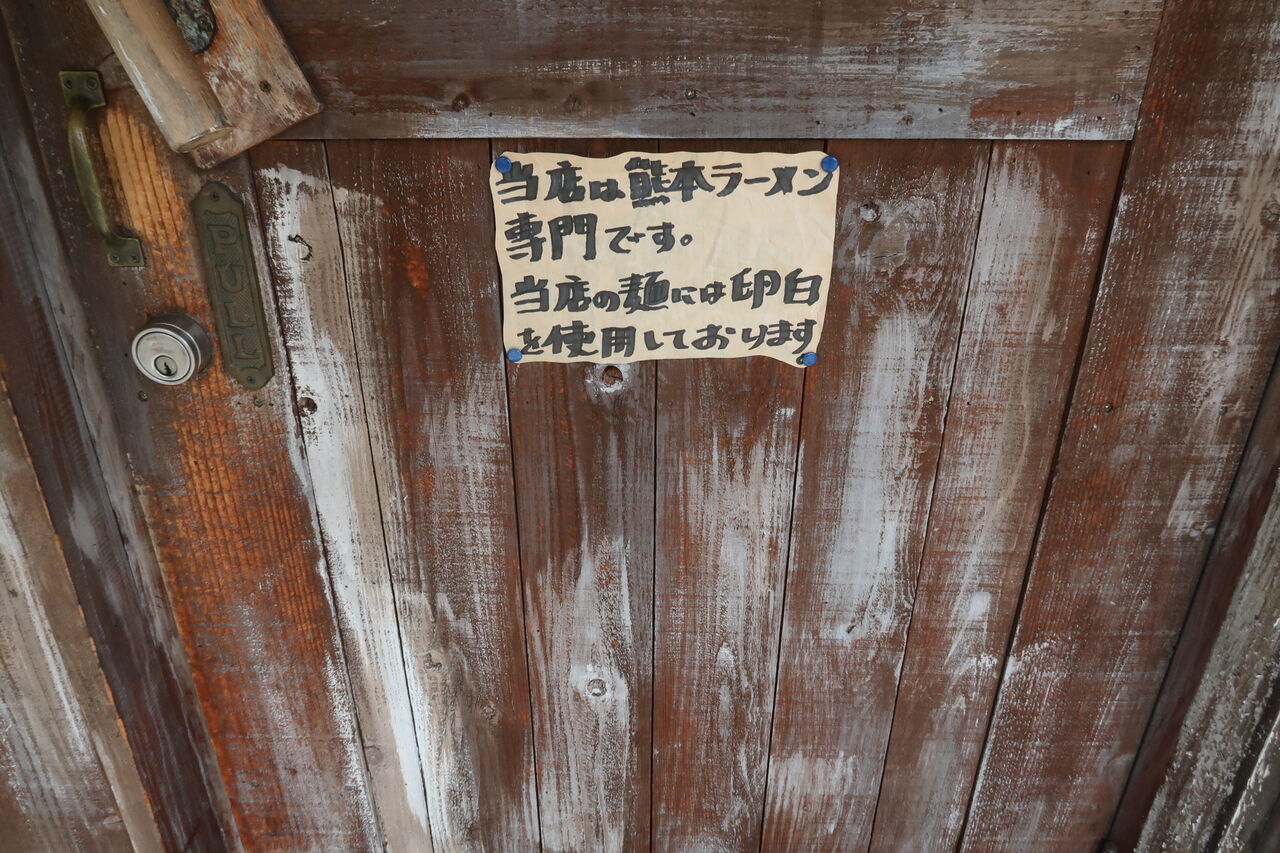 PULL
当店は熊本ラーメン
専門です。
当店の麺には卵白
を使用しております